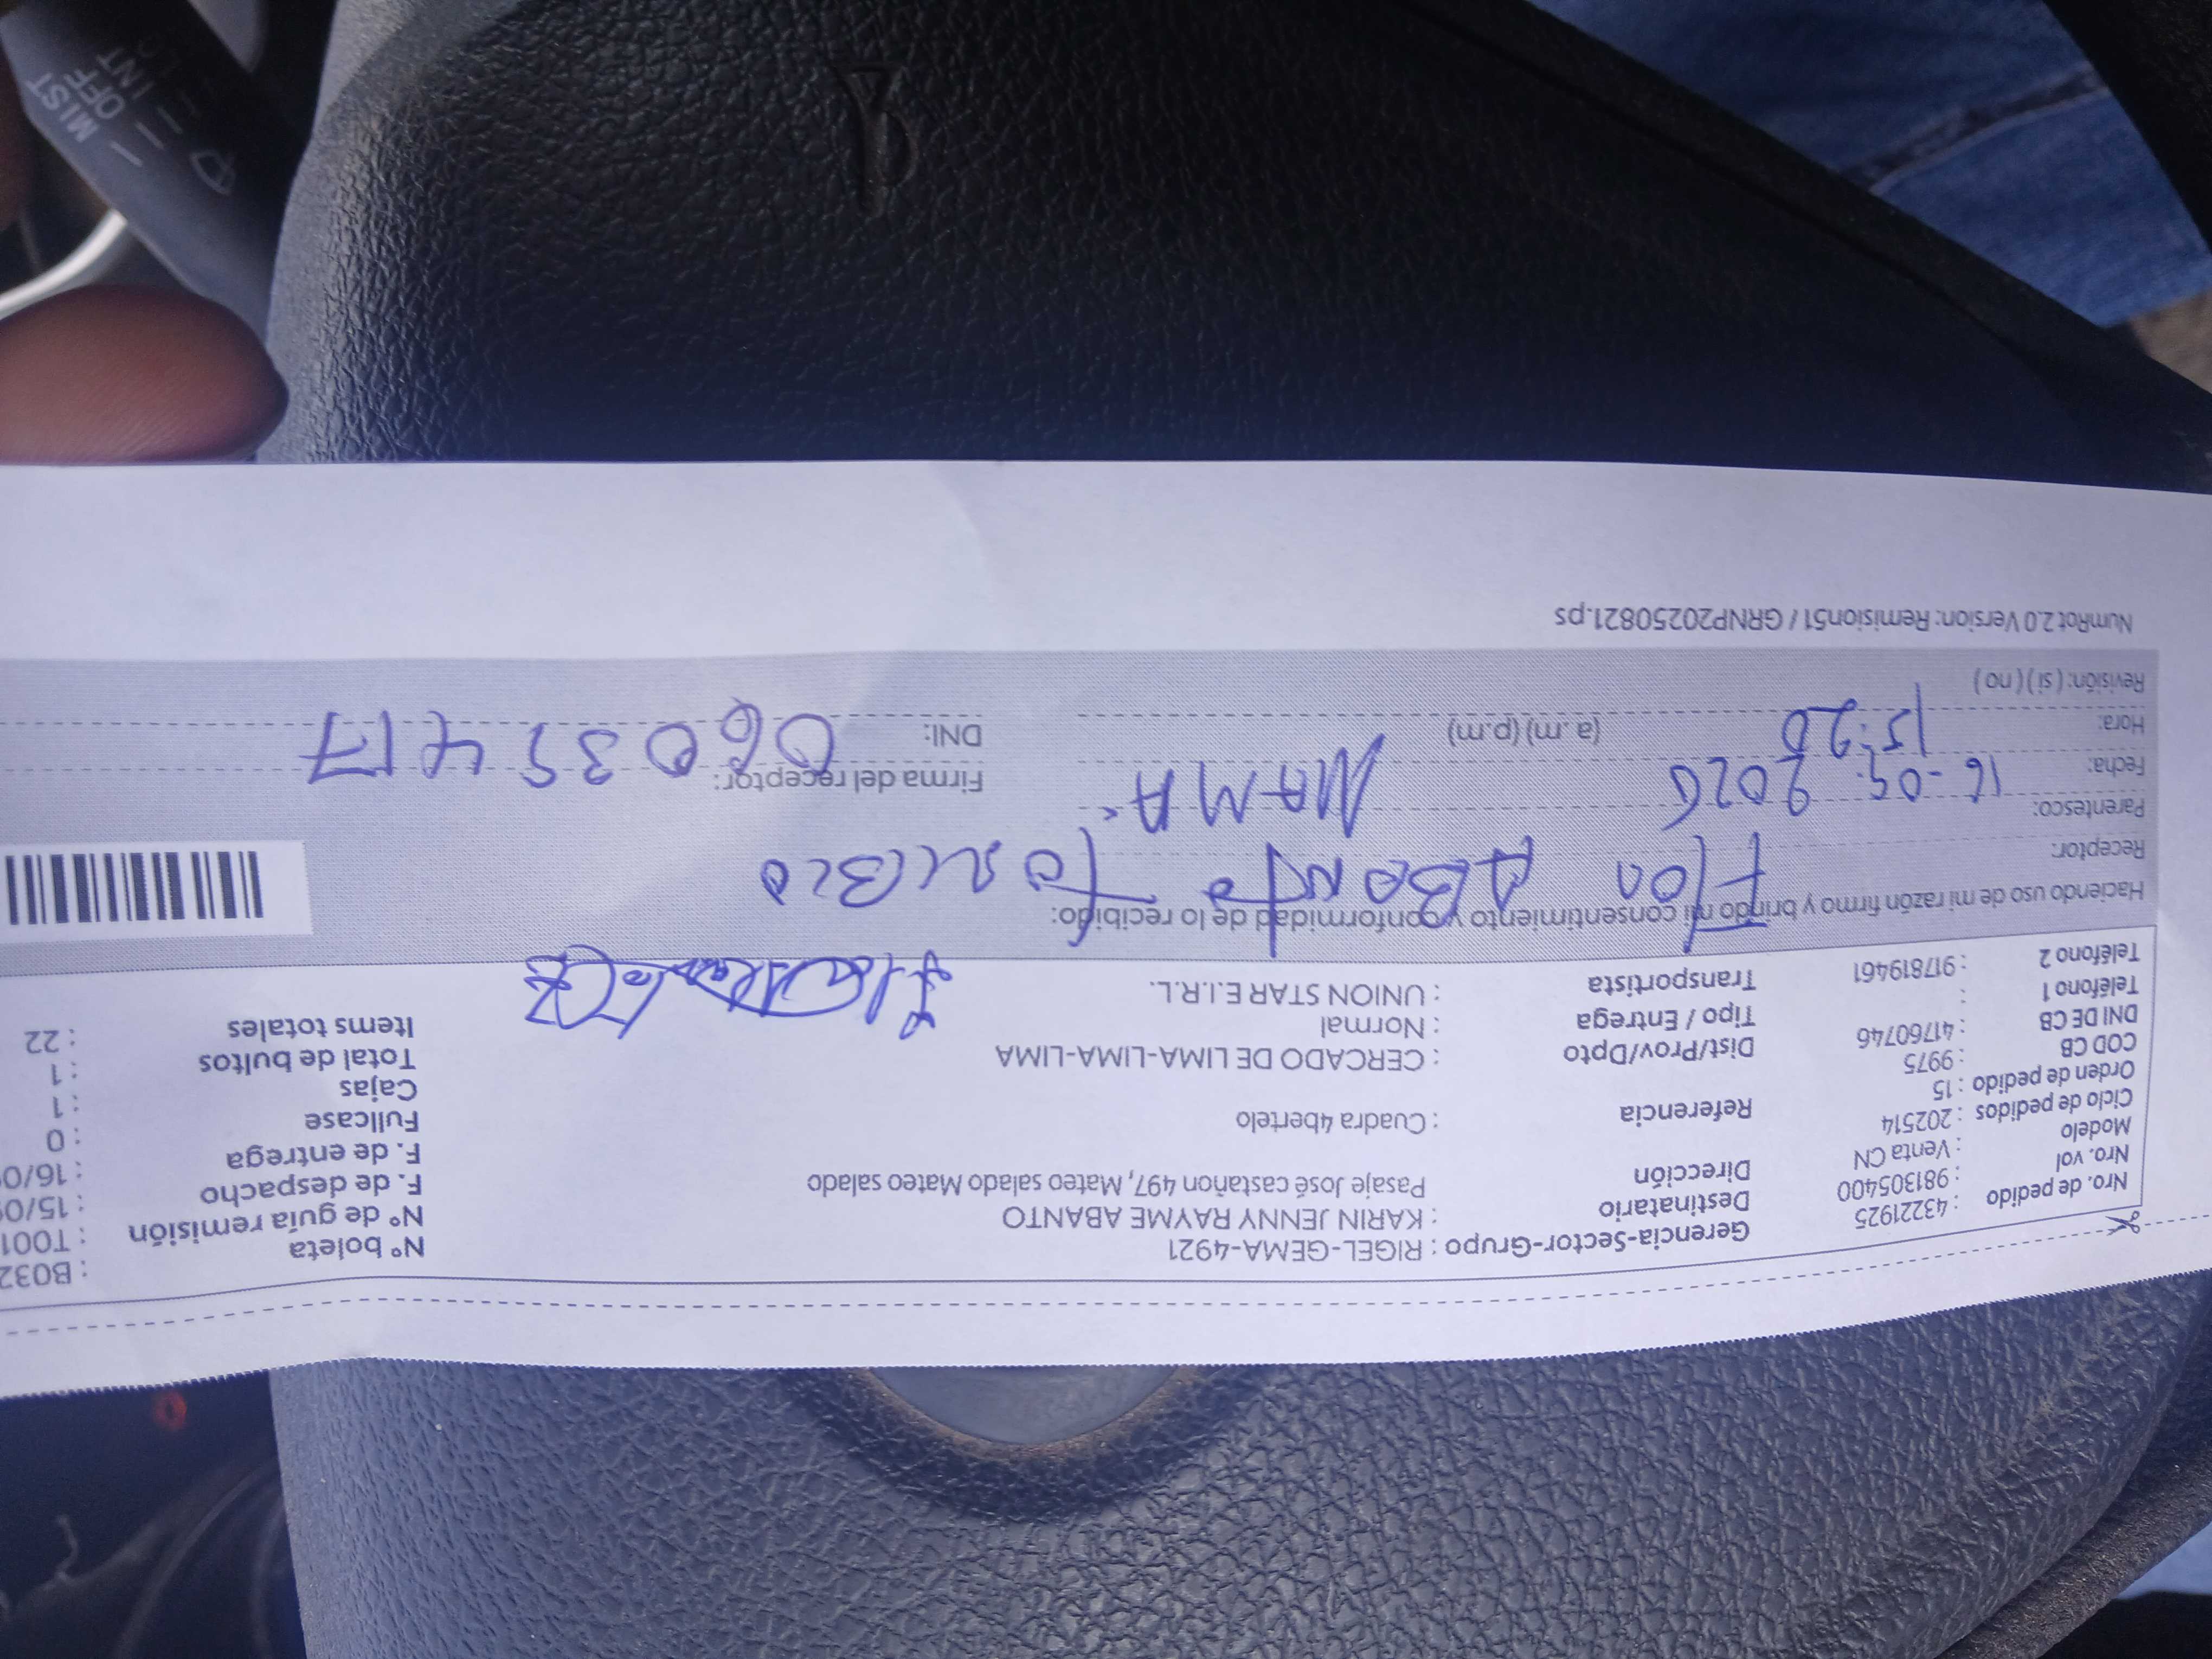 Gerencia-Sector-Grupo : RIGEL-GEMA-4921
Nro. de pedido : 43221925
Nro. vol : 981305400
Modelo : Venta CN
Ciclo de pedidos : 202514
Orden de pedido : 15
COD CB : 9975
DNI DE CB : 41760746
Teléfono 1 :
Teléfono 2 : 917819461
Destinatario : KARIN JENNY RAYME ABANTO
Dirección Pasaje José castañon 497, Mateo salado Mateo salado
Referencia : Cuadra 4bertelo
Dist/Prov/Dpto : CERCADO DE LIMA-LIMA-LIMA
Tipo / Entrega : Normal
Transportista : UNION STAR E.I.R.L.
N° boleta : B032
N° de guía remisión : T001
F. de despacho : 15/09
F. de entrega : 16/09
Fullcase : 0
Cajas : 1
Total de bultos : 1
Items totales : 22
Haciendo uso de mi razón firmo y brindo mi consentimiento y conformidad de lo recibido:
Receptor: Flor ABANTO TORIBIO
Parentesco: MAMA
Fecha: 16-09-2025
Hora: 15:20 (a.m) (p.m)
Revisión: ( si ) ( no )
Firma del receptor:
DNI: 06035417
NumRot 2.0 Version: Remision51 / GRNP20250821.ps
MIST
OFF
INT